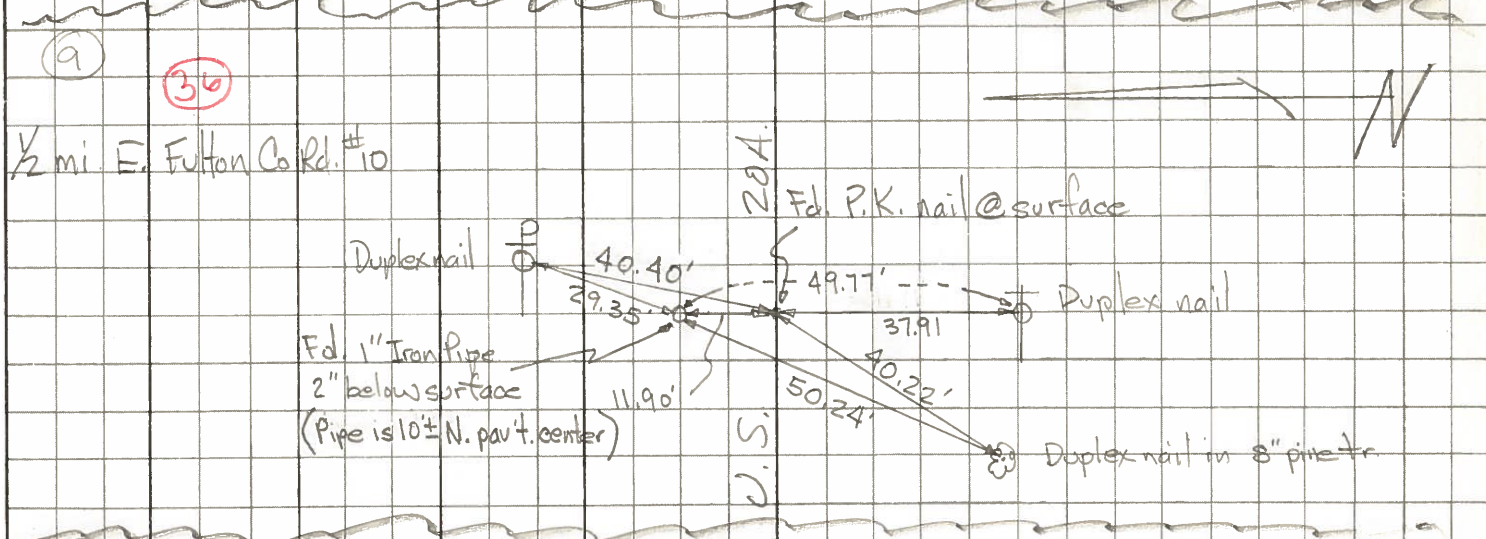 9
36
N
1/2 mi. E. Fulton Co Rd. #10
U.S. 20A.
Fd. P.K. nail @ surface
Duplex nail
P
40.40'
49.77'
29.35'
Duplex nail
37.91
Fd. 1" Iron Pipe
2" below surface
(Pipe is 10'± N. pav't. center)
11.90'
40.22'
50.24'
Duplex nail in 8" pine tr.